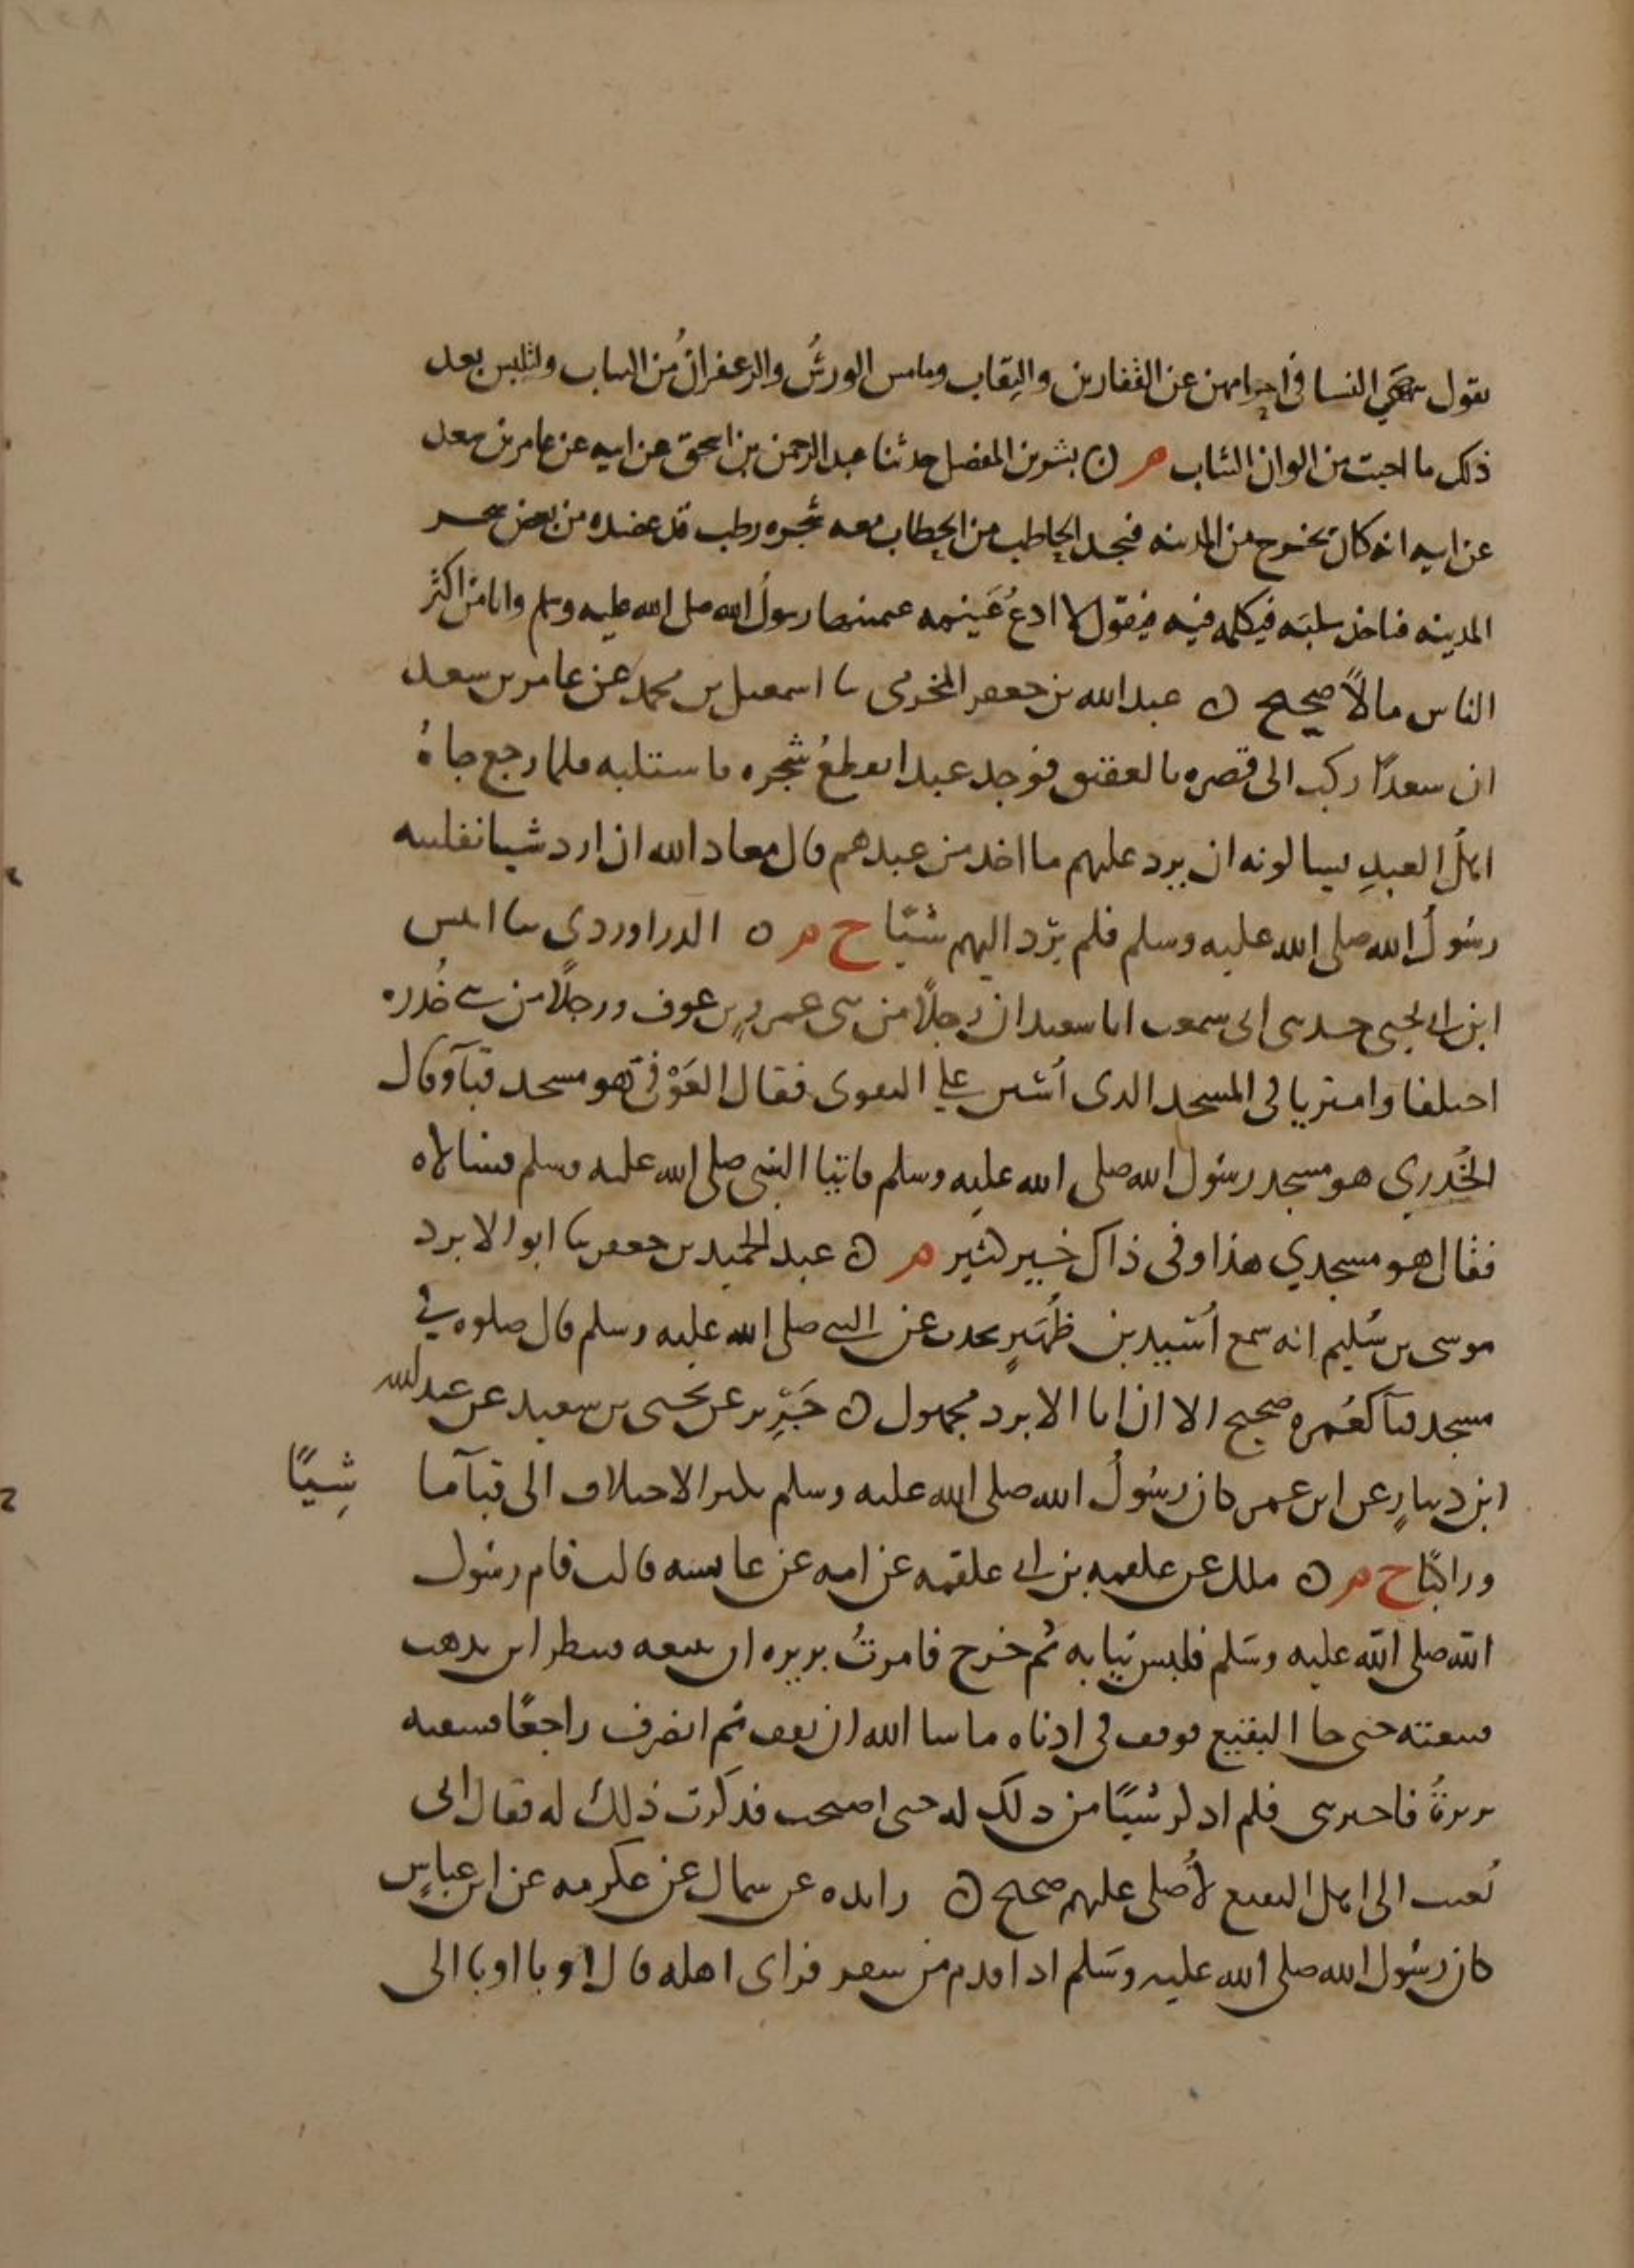 يقول ينهى النسا في احرامهن عن القفازين والنقاب وما مس الورسُ والزعفرانُ من الثياب ولتلبس بعد
ذلك ما احبت من الوان الثياب م ٥ بشر بن المفضل حدثنا عبد الرحمن بن اسحق عن ابيه عن عامر بن سعد
عن ابيه انه كان يخرج من المدينه فيجد الحاطب من الحطاب معه شجره رطب قد عضده من بعض شجر
المدينه فياخذ سلبَه فيكلمه فيه فيقول لا ادعُ غَنيمه غنمنيها رسولُ الله صلى الله عليه وسلم وانا من اكثر
الناس مالاً صحيح ٥ عبد الله بن جعفر المخرمى نا اسمعيل بن محمد عن عامر بن سعد
ان سعدًا ركب الى قصره بالعقيق فوجد عبدا يقطعُ شجره فاستلبه فلما رجع جاهُ
اهلُ العبدِ يسالونه ان يرد عليهم ما اخذ من عبدهم قال معاذ الله ان ارد شيا نفلنيه
رسُولُ الله صلى الله عليه وسلم فلم يرد اليهم شيًا خ م ٥ الدراوردي نا انيس
ابن ابي يحيى حدثني ابي سمعت ابا سعيد ان رجلًا من بني عمرو بن عوف ورجلًا من بني خُدره
اختلفا وامتريا في المسجد الذي أُسّس على التقوى فقال العَوْفي هو مسجد قبآ وقال
الخُدري هو مسجد رسُول الله صلى الله عليه وسلم فاتيا النبي صلى الله عليه وسلم فسالاه
فقال هو مسجدي هذا وفي ذاك خير كثير م ٥ عبد الحميد بن جعفر نا ابو الابرد
موسى بن سُليم انه سمع أُسَيد بن ظُهَيرٍ يحدث عن النبي صلى الله عليه وسلم قال صلوه في
مسجد قبآ كعُمره صحيح الا ان ابا الابرد مجهول ٥ جَرِير عن يحيى بن سعيد عن عبد الله
ابن دينارٍ عن ابن عمر كان رسُولُ الله صلى الله عليه وسلم يكثر الاختلاف الى قبآ ما شِيًا
وراكبًا خ م ٥ ملك عن علقمه بن ابي علقمه عن امه عن عايشه قالت قام رسُول
الله صلى الله عليه وسَلم فلبس ثيابه ثم خرج فامرتُ بريره ان تتبعه فتنظر اين يذهب
فتبعته حتى جا البقيع فوقف في ادناه ما شا الله ان يقف ثم انصرف راجعًا فسبقته
بريرةُ فاخبرتني فلم اذكر شيًا من ذلك له حتى اصبحت فذكرت ذلك له فقال اني
بُعثت الى اهل البقيع لأُصلى عليهم صحيح ٥ زايده عن سماك عن عكرمه عن ابن عباسٍ
كان رسُول الله صلى الله عليه وسَلم اذا قدم من سفر فراى اهله قال اوبا اوبا الى